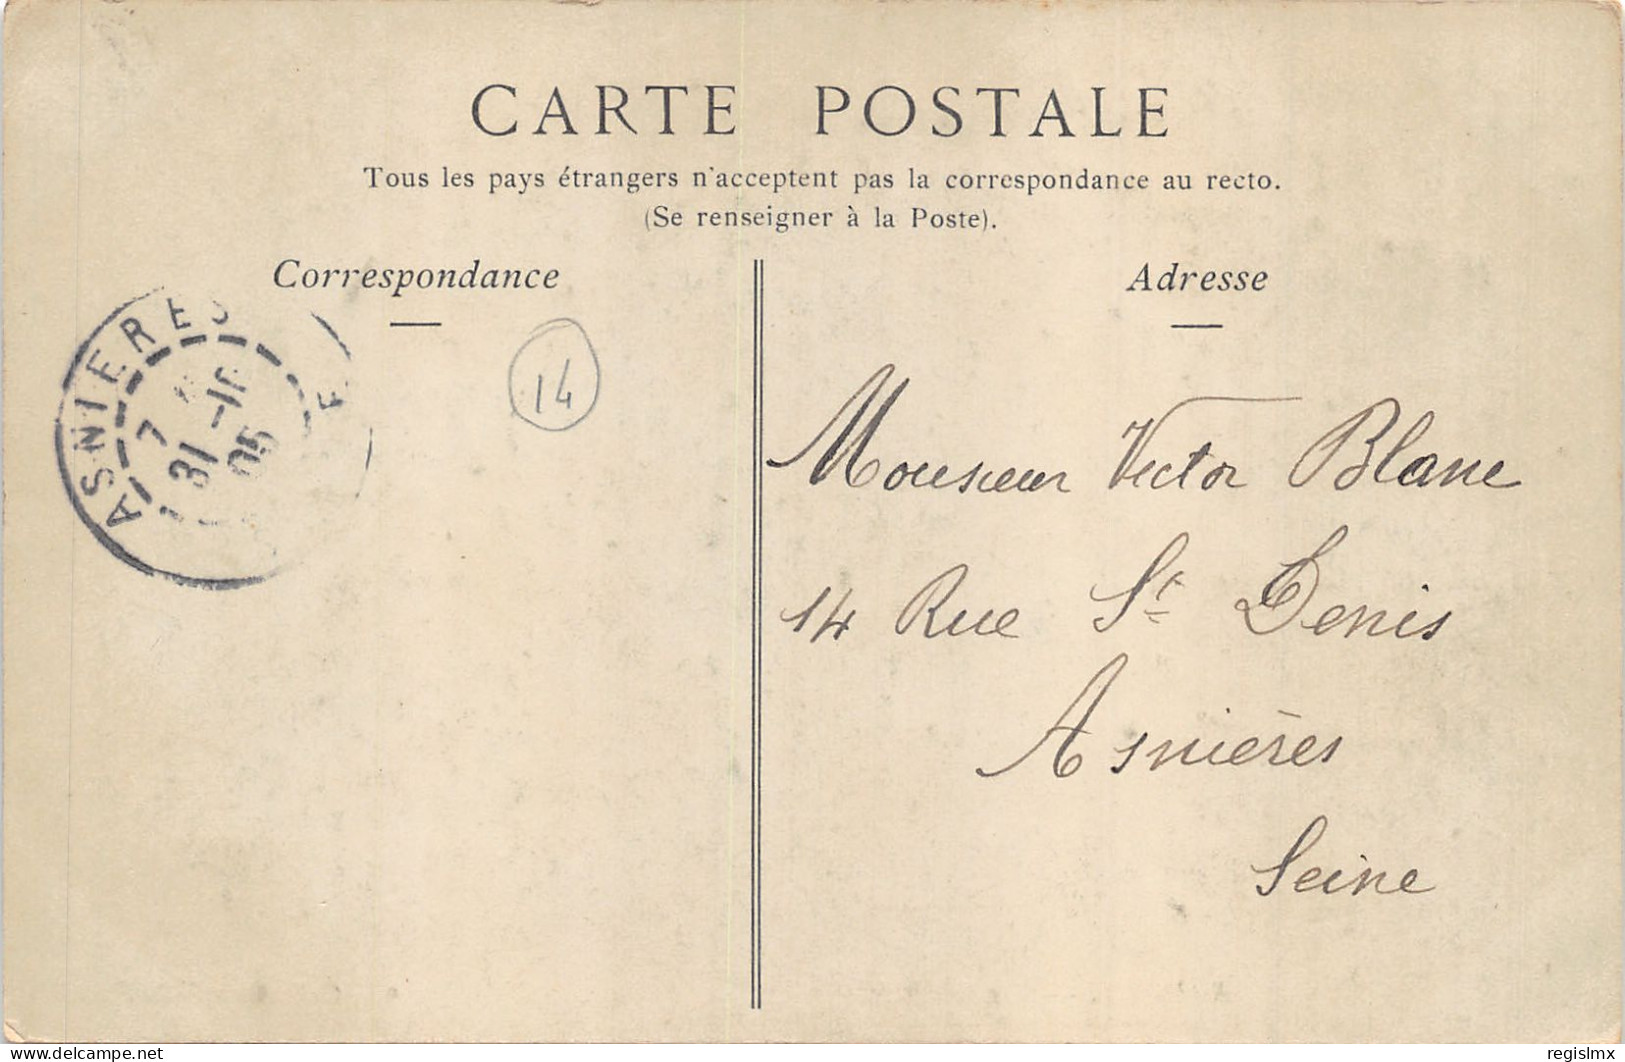 CARTE POSTALE
Tous les pays étrangers n'acceptent pas la correspondance au recto.
(Se renseigner à la Poste).
Correspondance
Adresse
ASNIERES
7
31 -
05
14
Monsieur Victor Blanc
14 Rue St Denis
Asnières
Seine
delcampe.net
regislmx